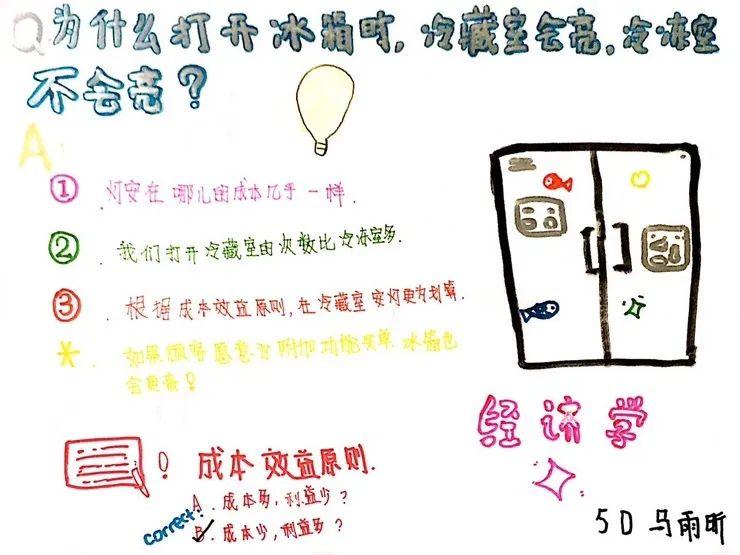 Q为什么打开冰箱时,冷藏室会亮,冷冻室
不会亮?
A
① 灯安在哪儿的成本几乎一样.
② 我们打开冷藏室的次数比冷冻室多.
③ 根据成本效益原则,在冷藏室安灯更为划算.
* 如果顾客愿意为附加功能买单,冰箱也
会更!
经济学
! 成本效益原则.
A. 成本多,利益少?
correct! B. 成本少,利益多?
5D 马雨昕